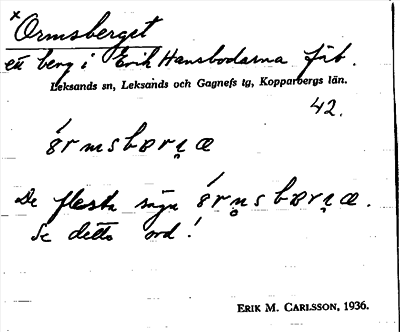 × Ormsberget
ett berg i Erik Hansbodarna fäb.
Leksands sn, Leksands och Gagnefs tg, Kopparbergs län.
42.
De flesta säga
Se detta ord!
ERIK M. CARLSSON, 1936.